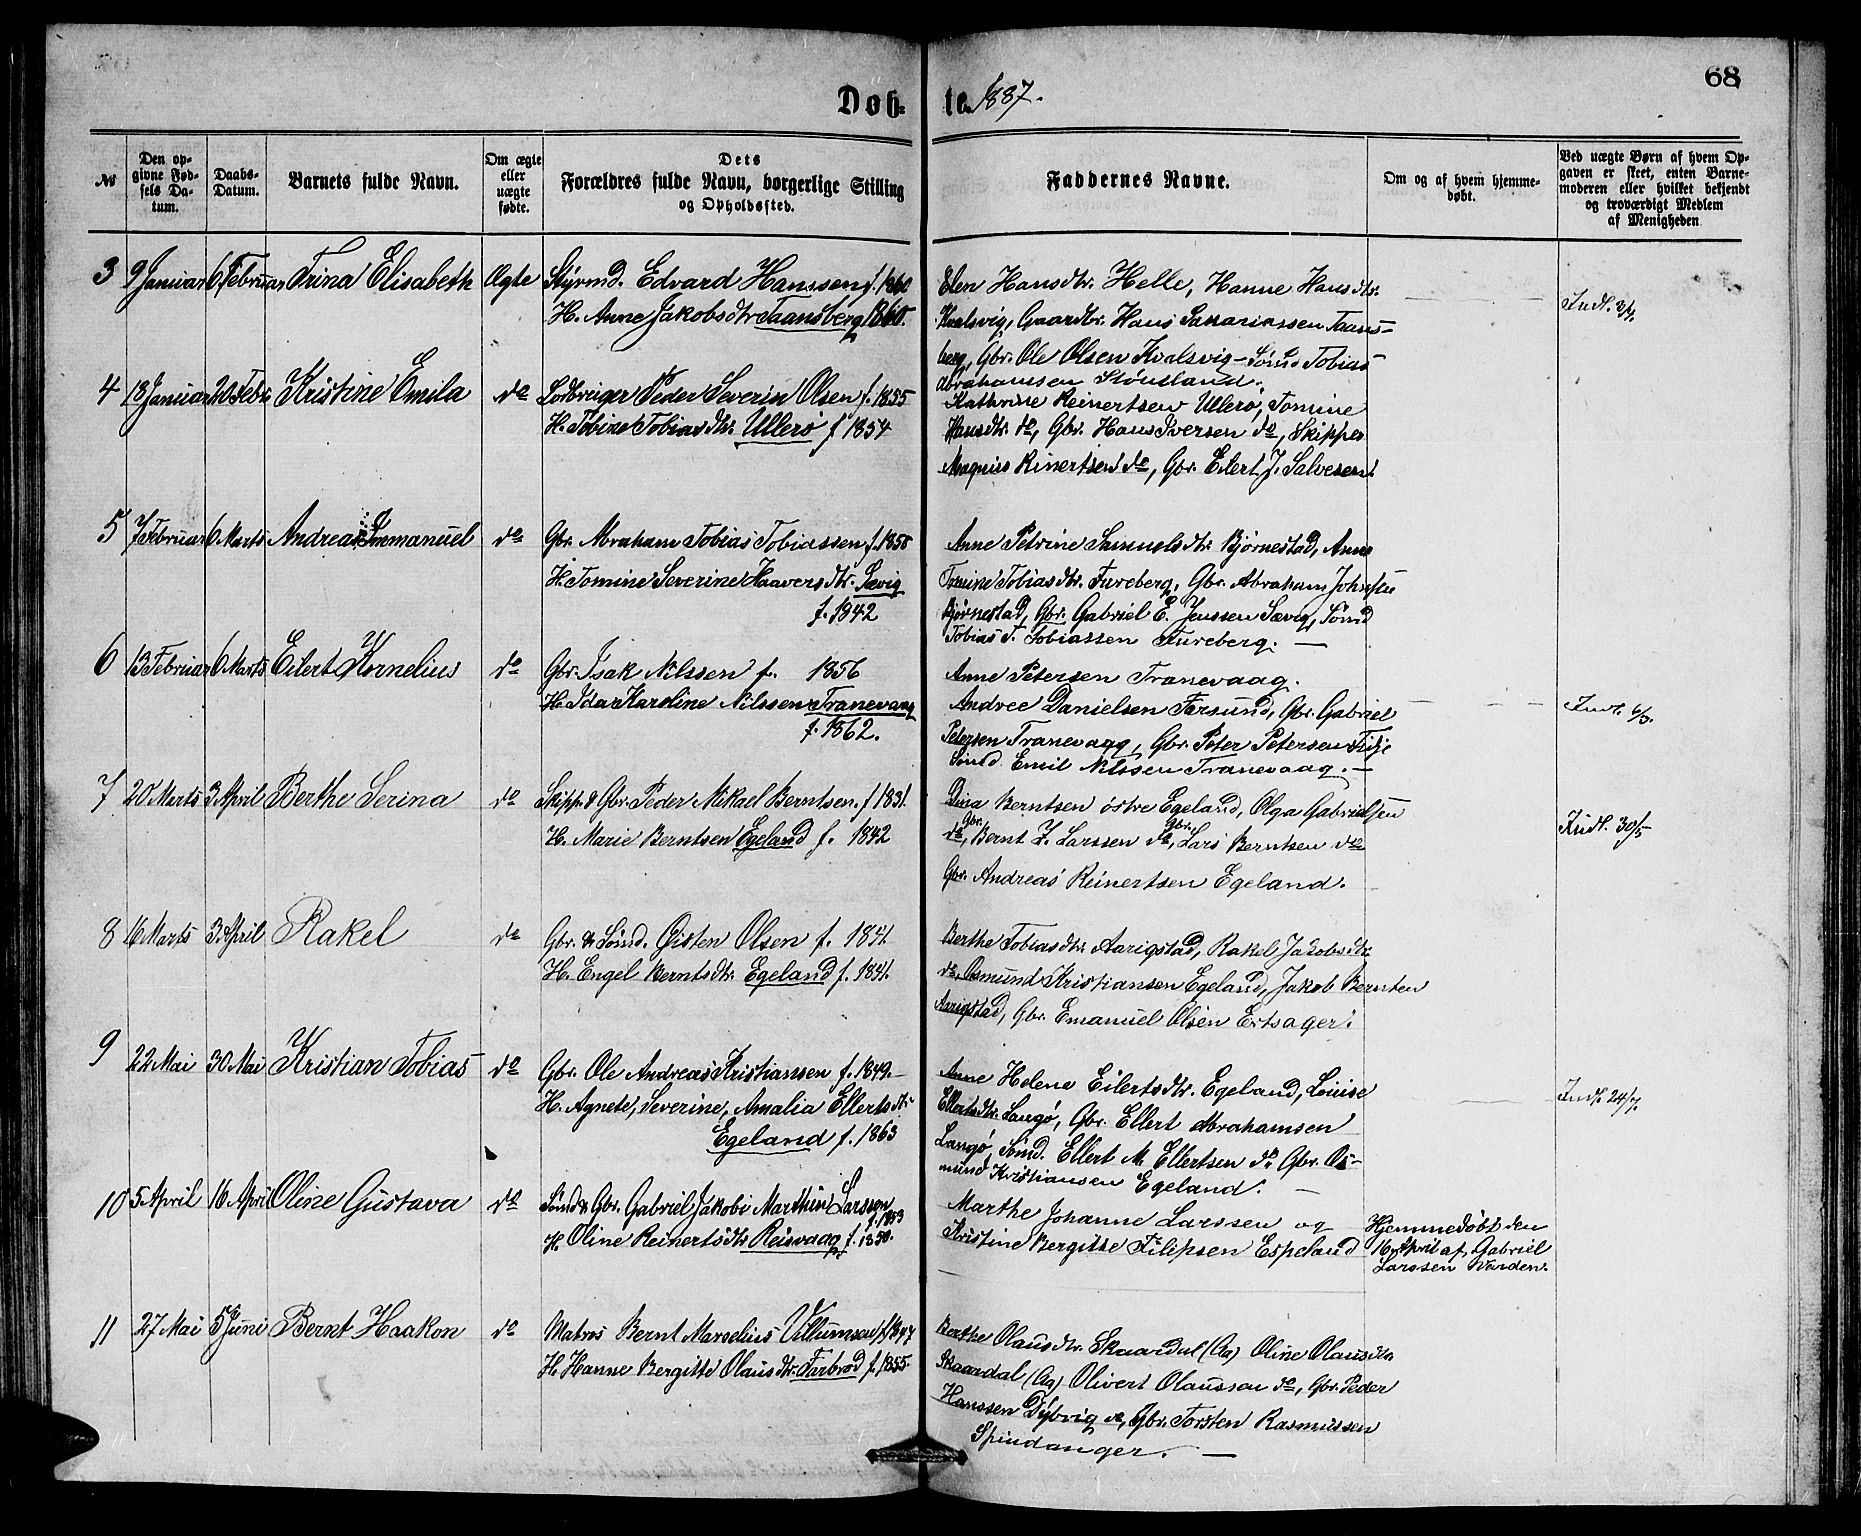 68
Døb- te. 1887.
№
Den opgivne Fødsels Datum.
Daabs-Datum.
Barnets fulde Navn.
Om ægte eller uægte fødte.
Dets
Forældres fulde Navn, borgerlige Stilling
og Opholdssted.
Faddernes Navne.
Om og af hvem hjemmedøbt.
Ved uægte Børn af hvem Opgaven er skeet, enten Barnemoderen eller hvilket bekjendt og troværdigt Medlem af Menigheden
3 9 Januar 6 Februar Trina Elisabeth Ægte Styrmd. Edvard Hanssen f. 1860
H. Anne Jakobsdtr Taansberg 1860.
Elen Hansdtr. Helle, Hanne Hansdtr.
Kvalsvig, Gaardbr. Hans Sakariassen Taans-
berg, Gbr. Ole Olsen Kvalsvig - Sømd Tobias
Abrahamsen Stousland.
Indl. 3/4.
4 18 Januar 20 Febr Kristine Emila do Lodbruger Peder Severin Olsen f. 1855
H. Tobine Tobiasdtr. Ullerø f 1854
Kathrine Reinertsen Ullerø, Tomine
Hansdtr. do, Gbr. Hans Iversen do, Skipper
Magnus Rinertsen do, Gbr. Eilert J. Salvesen.
5 7 Februar 6 Marts Andreas Immanuel do Gbr. Abraham Tobias Tobiassen f. 1858
H. Tomine Severine Haaversdtr. Sævig
f. 1842
Anne Petrine Samuelsdtr. Bjørnestad, Anne
Tomine Tobiasdtr. Fureberg, Gbr. Abraham Johnsen
Bjørnestad, Gbr. Gabriel E. Jenssen Sævig, Sømd
Tobias T. Tobiassen Fureberg.
6 13 Februar 6 Marts Eilert Kornelius do Gbr. Isak Nilssen f. 1856
H. Ida Karoline Nilssen Tranevaag
f. 1862.
Anne Petersen Tranevaag.
Andree Danielsen Farsund, Gbr. Gabriel
Petersen Tranevaag, Gbr. Peter Petersen
Sømd Emil Nilssen Tranevaag.
Indl. 6/3.
7 20 Marts 3 April Berthe Serina do Skipp. & Gbr. Peder Mikael Berntsen. f 1831.
H. Marie Berntsen Egeland f. 1842
Dina Berntsen østre Egeland, Olga Gabrielsen
do, Gbr. Bernt Z. Larssen do, Gbr. Lars Berntsen do
Gbr. Andreas Reinertsen Egeland.
Indl. 30/5
8 6 Marts 3 April Rakel do Gbr. & Sømd. Øisten Olsen f. 1841.
H. Engel Berntsdtr. Egeland f. 1841.
Berthe Tobiasdtr. Aarigstad, Rakel Jakobsdtr.
do, Osmund Kristiansen Egeland, Jakob Bernten
Aarigstad, Gbr. Emanuel Olsen Ertsager.
9 22 Mai 30 Mai Kristian Tobias do Gbr. Ole Andreas Kristiansen f. 1849.
H. Agnete, Severine, Amalia Ellertsdtr.
Egeland f. 1863
Anne Helene Eilertsdtr. Egeland, Louise
Ellertsdtr. Langø, Gbr. Ellert Abrahamsen
Langø, Sømd. Ellert M. Ellertsen do. Gbr. Os-
mund Kristiansen Egeland.
Indl. 24/7.
10 5 April 16 April Oline Gustava do Sømd & Gbr. Gabriel Jakobi Marthin Larssen
f. 1853
H. Oline Reinertsdtr Reisvaag f. 1850.
Marthe Johanne Larssen og
Kristine Bergitte Filipsen Espeland
Hjemmedøbt den
16 April af Gabriel
Larssen Varden.
11 27 Mai 5 Juni Bernt Haakon do Matros Bernt Marselius Villumsen f. 1847
H. Hanne Bergitte Olausdtr. Farbrod f. 1855.
Berthe Olausdtr. Skaardal (Aa) Oline Olausdtr.
Skaardal (Aa) Olivert Olaussen do, Gbr. Peder
Hanssen Dybvig do, Gbr. Torsten Rasmussen
Spindanger.